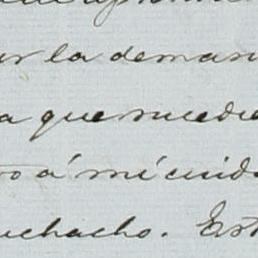 ar la demas
a que sucedie
o á mi cuida
uchacho. Est